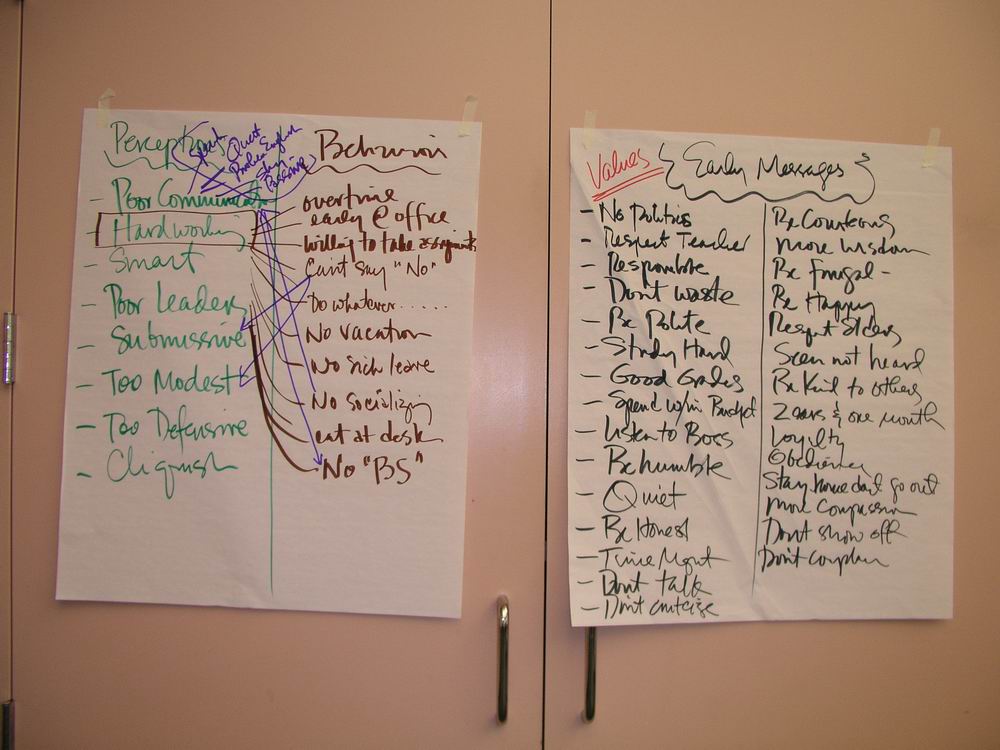 Perceptions
Quiet
Broken English
Shy
Passive
Poor Communicat
- Hardworking
- Smart
- Poor Leader
- Submissive
- Too Modest
- Too Defensive
- Cliquish
Behavior
overtime
early @ office
willing to take assignments
Can't say "No"
Do whatever......
No vacation
No sick leave
No socializing
eat at desk
No "BS"
Values
Early Messages
- No Politics
- Respect Teacher
- Responsible
- Dont waste
- Be Polite
- Study Hard
- Good Grades
- Spend w/in Budget
- Listen to Boss
- Be humble
- Quiet
- Be Honest
- Time Mgmt
- Dont talk
- Don't criticize
Be Courteous
More wisdom
Be Frugal -
Be Happy
Respect Elders
Seen not heard
Be Kind to others
2 ears & one mouth
Loyalty
Obedience
Stay home don't go out
More Compassion
Don't show off
Don't complain